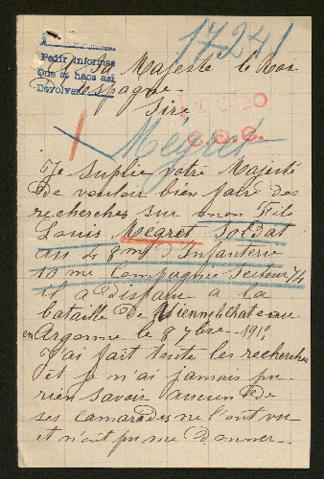 17241
Pedir informes
Que se haga así
Devolver
A Sa Majesté le Roi
despagne
Sire
C.O.C.
Megret
Je suplie votre Majesté
de vouloir bien faire des
recherches sur mon Fils
Louis Megret Soldat
au 4 eme d'Infanterie
10 me Compagnie Secteur
il a disparu a la
bataille de Vienne le Chateau
en Argonne le 8 7bre 191
J'ai fait toute les recherches
et je n'ai jamais pu
rien savoir aucun de
ses camarades ne l'ont vu
et n'ont pu me donner